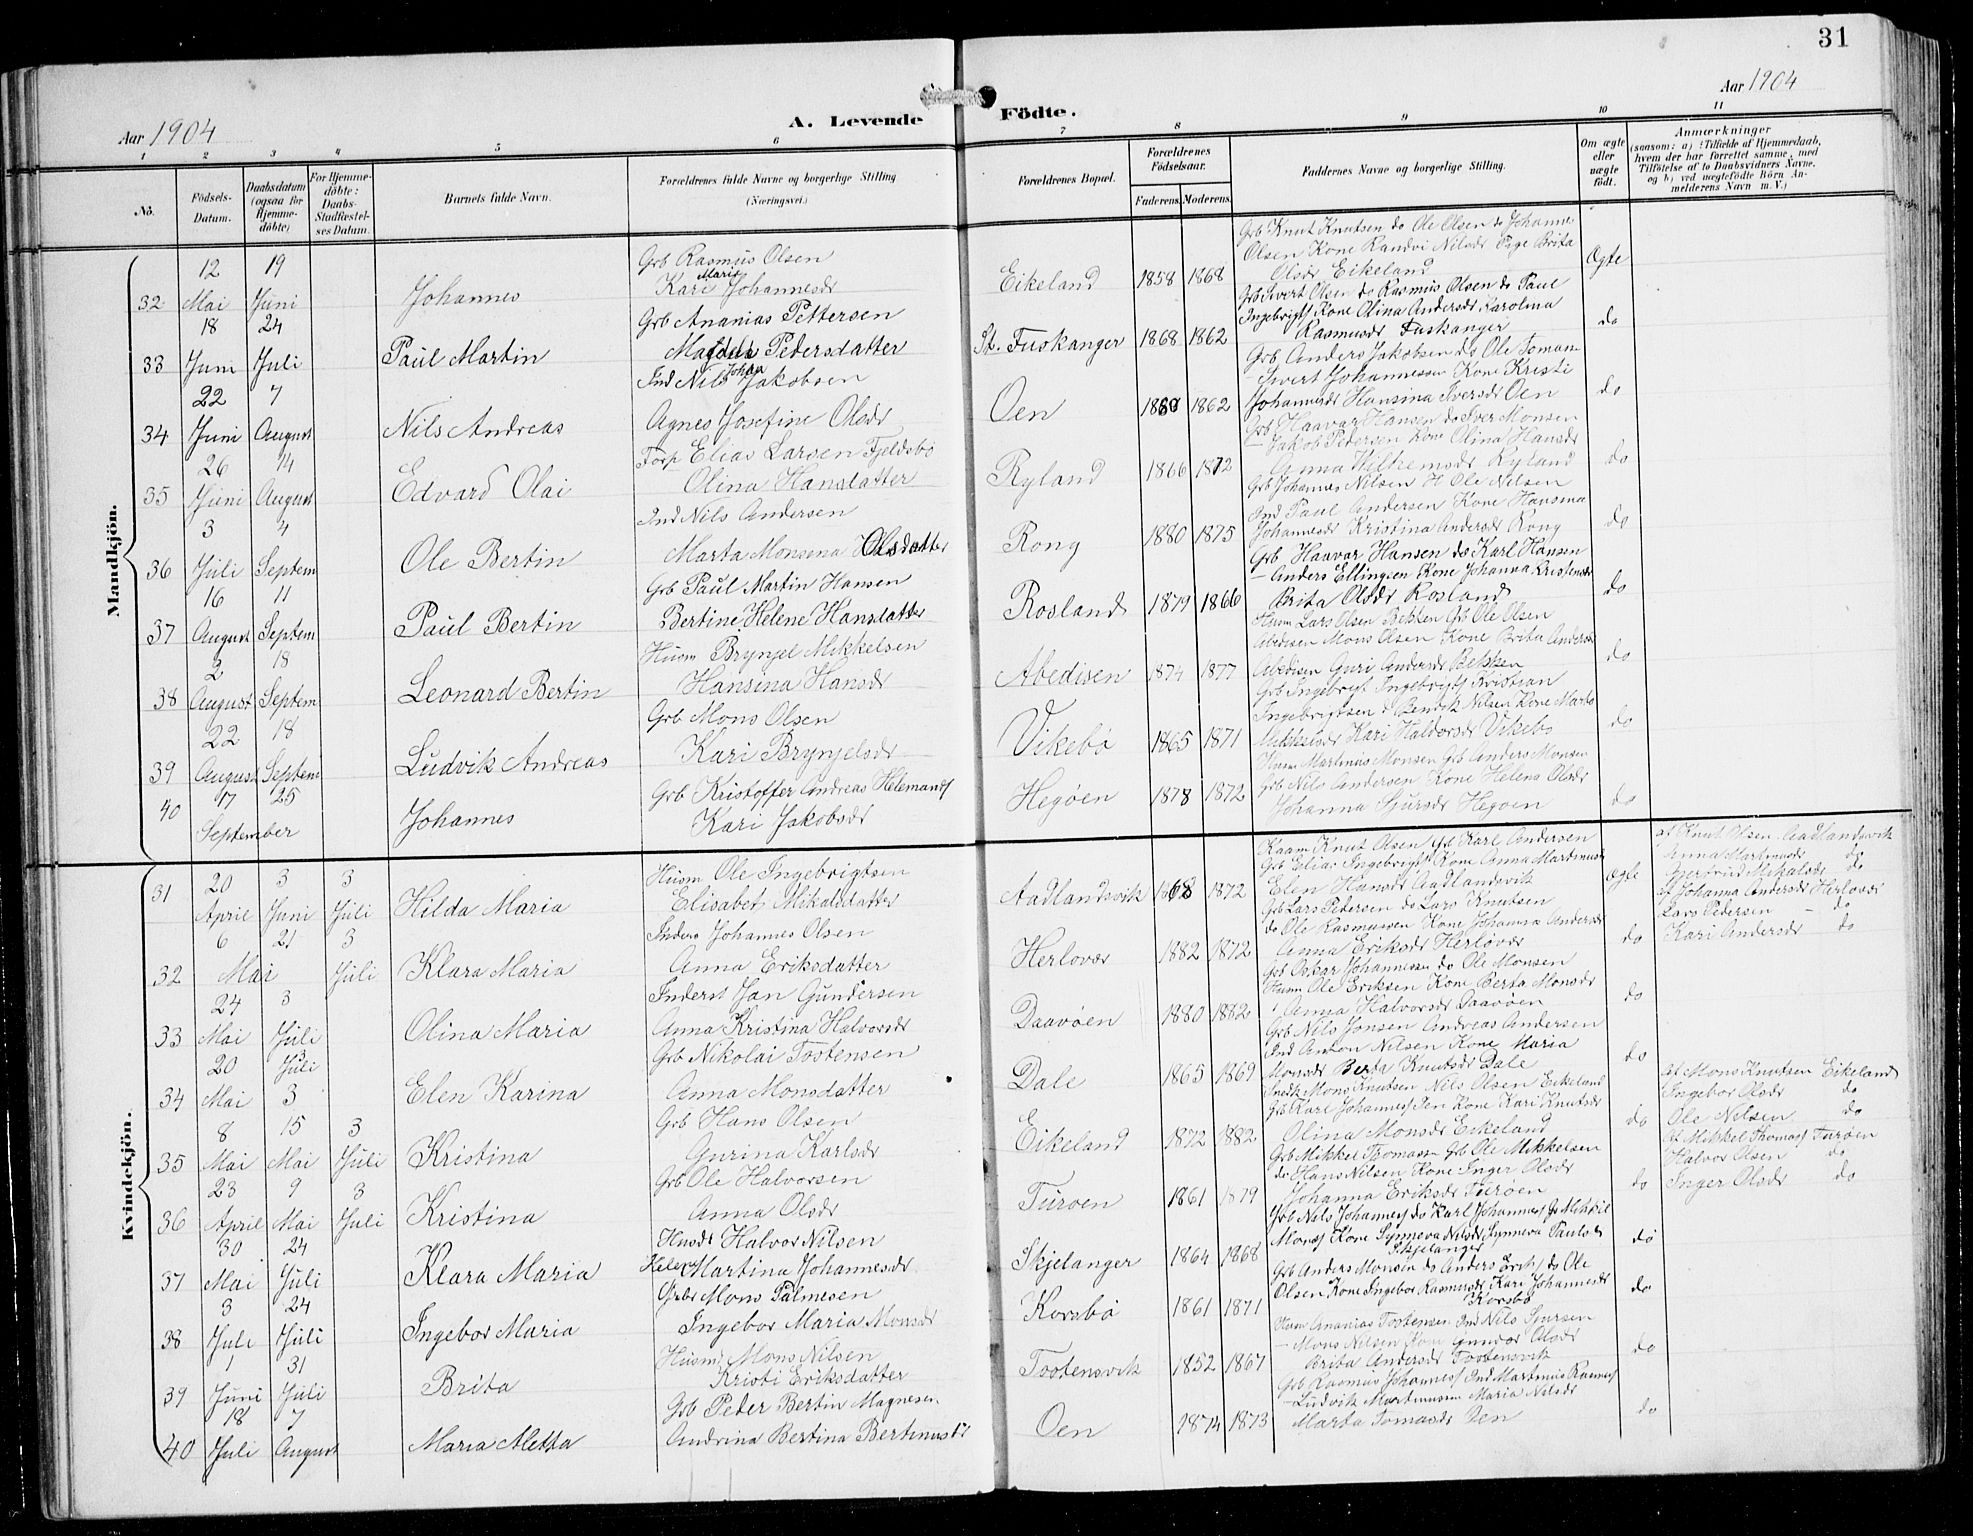 31
Aar 1904
A. Levende Födte.
Aar 1904
1 2 3 4 5 6 7 8 9 10 11
No.
Födsels-Datum.
Daabsdatum (ogsaa for Hjemmedöbte)
For Hjemmedöbte: Daabs-Stadfæstelses Datum.
Barnets fulde Navn.
Forældrenes fulde Navne og borgerlige Stilling (Næringsvei.)
Forældrenes Bopæl.
Forældrenes Födselsaar.
Faderens. Moderens.
Faddernes Navne og borgerlige Stilling.
Om ægte eller uægte födt.
Anmærkninger
(saasom: a) i Tilfælde af Hjemmedaab, hvem der har forrettet samme, med Tilföielse af to Daabsvidners Navne, og b) ved uægtefödte Börn Anmelderens Navn m. V.)
Mandkjön.
32 12 Mai 19 Juni Johannes
Grb Rasmus Olsen
Kari Maria Johannesdr
Eikeland 1858 1868
Grb Knut Knutsen do Ole Olsen do Johannes
Olsen Kone Randvi Nilsdr Pige Brita
Olsdr Eikeland
Ægte
33 18 Juni 24 Juli Paul Martin
Grb Ananias Pettersen
Magdala Pedersdatter
St. Fuskanger 1868 1862
Grb Sivert Olsen do Rasmus Olsen do Paul
Ingebrigts Kone Olina Andersdr Karolina
Rasmusdr Fuskanger
do
34 22 Juni 7 August Nils Andreas
Ind Nils Johan Jakobsen
Agnes Josefine Olsdr
Oen 1880 1862
Grb Anders Jakobsen do Ole Toman
- Sivert Johannessen Kone Kristi
Johannesdr Hansina Iversdr Oen
do
35 26 Juni 14 August Edvard Olai
Forp Elias Larsen Fjeldsbø
Olina Hansdatter
Ryland 1866 1872
Grb Haavar Hansen do Iver Monsen
- Jakob Pedersen Kone Olina Hansdr
Anna Wilhemsdr Ryland
do
36 3 Juli 4 Septem Ole Bertin
Ind Nils Andersen
Marta Monsina Olsdatter
Rong 1880 1875
Grb Johannes Nilsen H Ole Nilsen
Ind Paul Andersen Kone Hansina
Johannesdr Kristina Andersdr Rong
do
37 16 August 11 Septem Paul Bertin
Grb Paul Martin Hansen
Bertine Helene Hansdatter
Rosland 1879 1866
Grb Haavar Hansen do Karl Hansen
- Anders Ellingsen Kone Johanna Kristensdr
Brita Olsdr Rosland
do
38 2 August 18 Septem Leonard Bertin
Husm Brynjel Mikkelsen
Hansina Hansdr
Abedisen 1874 1877
Husm Lars Olsen Bekken Grb Ole Olsen
Abedisen Mons Olsen Kone Brita Andersdr
Abedisen Guri Andersdr Bekken
do
39 22 August 18 Septem Ludvik Andreas
Grb Mons Olsen
Kari Brynjelsdr
Vikebø 1865 1871
Grb Ingebrigt Ingebrigts Kristian
Ingebrigtsen d Bendik Nilsen Kone Marta
Mikkelsdr Kari Haldorsdr Vikebø
do
40 17 September 25 Johannes
Grb Kristoffer Andreas Helemands
Kari Jakobsdr
Hegøen 1878 1872
Husm Martinus Monsen Grb Anders Monsen
Grb Nils Andersen Kone Helena Olsdr
Johanna Sjursdr Hegøen
do
Kvindekjön.
31 20 April 3 Juni 3 Juli Hilda Maria
Husm Ole Ingebrigtsen
Elisabet Mikalsdatter
Aadlandsvik 1868 1872
Kaam Knut Olsen Grb Karl Andersen
Grb Elias Ingebrigts Kone Anna Martinusdr
Elen Hansdr Aadlandsvik
ægte
af Knut Olsen Aadlandsvik
Anna Martinusdr do
Gjertrud Mikalsdr do
32 6 Mai 21 3 Juli Klara Maria
Inders Johannes Olsen
Anna Eriksdatter
Herlovær 1882 1872
Grb Lars Pedersen do Lars Knutsen
do Ole Rasmussen Kone Johanna Andersdr
Anna Eriksdr Herløvær
do
af Johanna Andersdr Herlovær
Lars Pedersen - do
Kari Andersdr do
33 24 Mai 3 Juli Olina Maria
Inderst Jan Gundersen
Anna Kristina Halvorsdr
Daavøen 1880 1882
Grb Oskar Johannessen do Ole Monsen
Husm Ole Eriksen Kone Berta Monsdr
Anna Halvorsdr Daavøen
do
34 20 Mai 3 Juli 3 Elen Karina
Grb Nikolai Tostensen
Anna Monsdatter
Dale 1865 1869
Grb Nils Jonsen Andreas Andersen
Ind Anton Nilsen Kone Maria
Monsdr Berta Knutsdr Dale
do
35 8 Mai 15 Mai 3 Juli Kristina
Grb Hans Olsen
Gurina Karlsdr
Eikeland 1872 1882
Snedk Mons Knutsen Nils Olsen Eikeland
Grb Karl Johannes Sen Kone Kari Knutsdr
Olina Monsdr Eikeland
do
af Mons Knutsen Eikeland
Ingebor Olsdr do
Ole Nilsen do
36 23 April 9 Mai 3 Juli Kristina
Grb Ole Halvorsen
Anna Olsdr
Turoen 1861 1879
Grb Mikkel Thomass Grb Ole Mikkelsen
do Hans Nilsen Kone Inger Olsdr
Johanna Eriksdr Turøen
do
af Mikkel Thomass Turøen
Halvor Olsen do
Inger Olsdr do
37 30 Mai 24 Juli Klara Maria
Husdr Halvor Nilsen
Helena Martina Johannesdr
Skjelanger 1864 1868
Grb Nils Johannes do Karl Johannes G Mikkel
Mons Kone Synneva Nilsdr Synneva Paulsdr
Skjelanger
do
38 3 Juli 24 Juli Ingebor Maria
Grbr Mons Palmesen
Ingebor Maria Monsdr
Korsbø 1861 1871
Grb Anders Monsen do Anders Eriks do Ole
Olsen Kone Ingebor Rasmusdr Kari Johannesdr
Korsbø
do
39 1 Juni 31 Juli Brita
Husm Mons Nilsen
Kristi Eriksdatter
Tostensvik 1852 1867
Husm Ananias Tostensen Ind Nils Sjursen
- Mons Nilsen Kone Gunder Olsdr
Brita Andersdr Tostensvik
do
40 18 Juli 7 August Maria Metta
Grb Peder Bertin Magnesen
Andrina Bertina Bertinusdr
Oen 1874 1873
Grb Rasmus Johannes Ind Martinus Rasmus
- Ludvik Martinussen Maria Nilsdr
Marta Tomasdr Oen
do